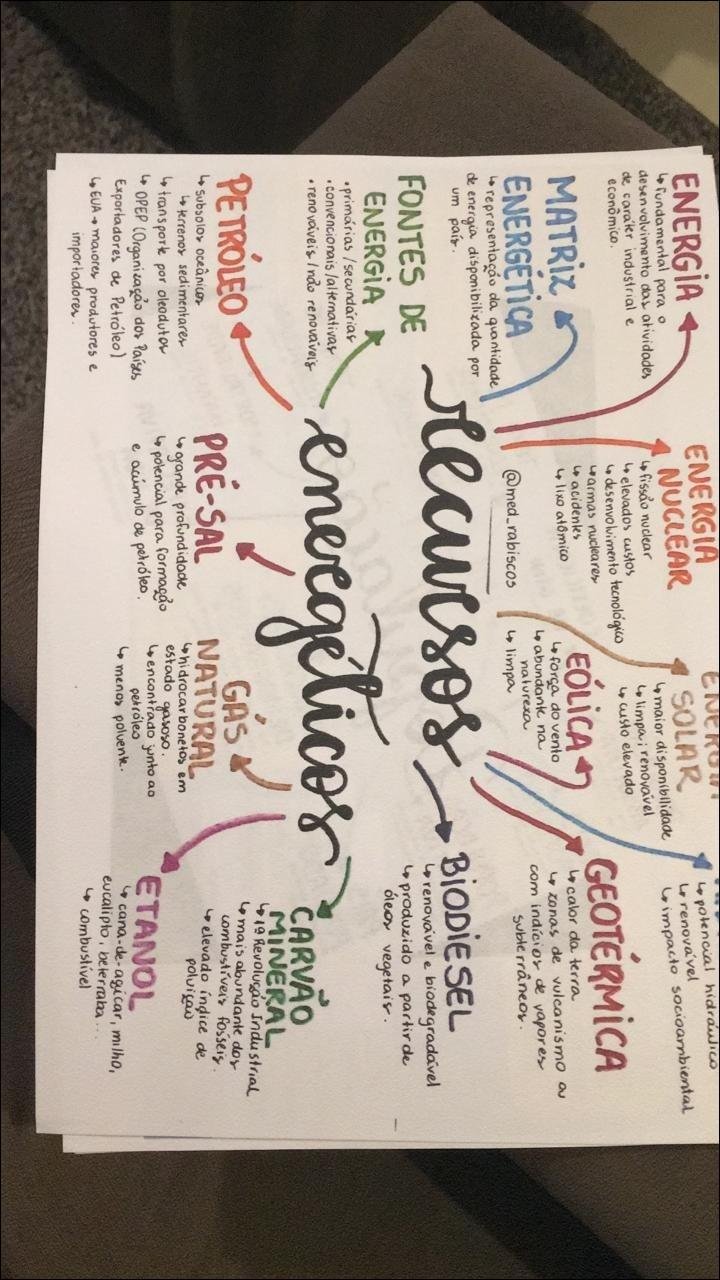 ENERGIA
↳ fundamental para o
desenvolvimento das atividades
de caráter industrial e
econômico.
MATRIZ
ENERGÉTICA
↳ representação da quantidade
de energia disponibilizada por
um país.
FONTES DE
ENERGIA
• primárias/secundárias
• convencionais/alternativas
• renováveis/não renováveis
PETRÓLEO
↳ subsolos oceânicos
↳ terrenos sedimentares
↳ transporte por oleodutos
↳ OPEP (Organização dos Países
Exportadores de Petróleo)
↳ EUA → maiores produtores e
importadores.
ENERGIA
NUCLEAR
↳ fissão nuclear
↳ elevados custos
↳ desenvolvimento tecnológico
↳ armas nucleares
↳ acidentes
↳ lixo atômico
@med_rabiscos
recursos
energéticos
PRÉ-SAL
↳ grande profundidade
↳ potencial para formação
e acúmulo de petróleo.
ENERGIA
SOLAR
↳ maior disponibilidade
↳ limpa; renovável
↳ custo elevado
EÓLICA
↳ força do vento
↳ abundante na
natureza
↳ limpa
GÁS
NATURAL
↳ hidrocarbonetos em
estado gasoso.
↳ encontrado junto ao
petróleo
↳ menos poluente.
↳ potencial hidráulico
↳ renovável
↳ impacto socioambiental
GEOTÉRMICA
↳ calor da terra
↳ zonas de vulcanismo ou
com indícios de vapores
subterrâneos.
BIODIESEL
↳ renovável e biodegradável
↳ produzido a partir de
óleos vegetais.
CARVÃO
MINERAL
↳ 1ª Revolução Industrial
↳ mais abundante dos
combustíveis fósseis.
↳ elevado índice de
poluição
ETANOL
↳ cana-de-açúcar, milho,
eucalipto, beterraba...
↳ combustível